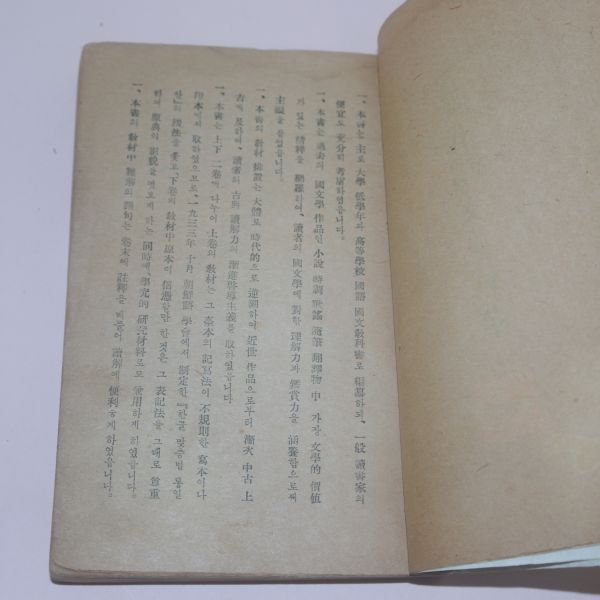 一、本書는 主로 大學 低學年과 高等學校 國語 國文敎科書로 編纂하되、一般 讀書家의
便宜도 充分히 考慮하였읍니다。
一、本書는 過去의 國文學 作品인 小說 時調 歌謠 隨筆 翻譯物 中 가장 文學的 價値
가 있는 精粹를 網羅하여、讀者의 國文學에 對한 理解力과 鑑賞力을 涵養함으로써
主眼을 삼았읍니다。
一、本書의 敎材 排置는 大體로 時代的으로 逆溯하여 近世 作品으로부터 漸次 中古 上
古에 及하여、讀者의 古典 讀解力의 漸進啓導主義를 取하였읍니다
一、本書는 上下 二卷에 나누어 上卷의 敎材는 그 臺本의 記寫法이 不規則한 寫本이나
印本에서 取하였으므로、一九三三年 十月 朝鮮語 學會에서 制定한『한글 맞춤법 통일
안』의 綴法을 좇고、下卷의 敎材中 原本이 信憑할만 한 것은 그 表記法을 그대로 尊重
하여 原典의 面貌를 엿보게 하는 同時에、學究的 硏究材料로도 兼用하게 하였읍니다。
一、本書의 敎材中 難解의 語句는 卷末에 註釋을 베풀어 讀解에 便利롭게 하였읍니다。